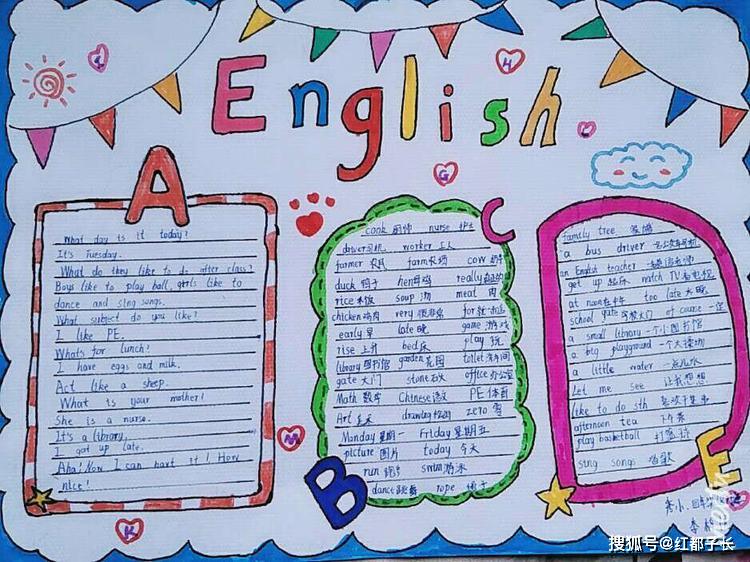 English
A
What day is it today?
It's Tuesday.
What do they like to do after class?
Boys like to play ball, girls like to
dance and sing songs.
What subject do you like?
I like PE.
Whats for lunch?
I have eggs and milk.
Act like a sheep.
What is your mother?
She is a nurse.
It's a library.
I got up late.
Aha! Now I can hart it! How
nice!
C
cook 厨师 nurse 护士
driver司机 worker 工人
farmer 农民 farm农场 cow 奶牛
duck 鸭子 hen母鸡 really
rice 米饭 soup 汤 meat 肉
chicken鸡肉 very 很非常 for
early 早 late 晚 game 游戏
rise 上升 bed床 play 玩
library 图书馆 garden花园 toilet洗手间
gate 大门 stone石头 office办公室
Math 数学 Chinese语文 PE 体育
Art 美术 drawing zero 零
Monday 星期一 Friday 星期五
picture 图片 today 今天
run 跑步 swim游泳
dance跳舞 rope 绳子
B
family tree
a bus driver 一名公交车司机
an English teacher
get up 起床 watch TV 看电视
at noon在中午 too late 太晚
school gate 学校大门 of course 一定
a small library 一个小图书馆
a big playground 一个大操场
a little water 一点儿水
Let me see 让我想想
like to do sth 喜欢干某事
afternoon tea 下午茶
play basketball 打篮球
sing songs 唱歌
E
G
H
M
K
搜狐号@红都子长